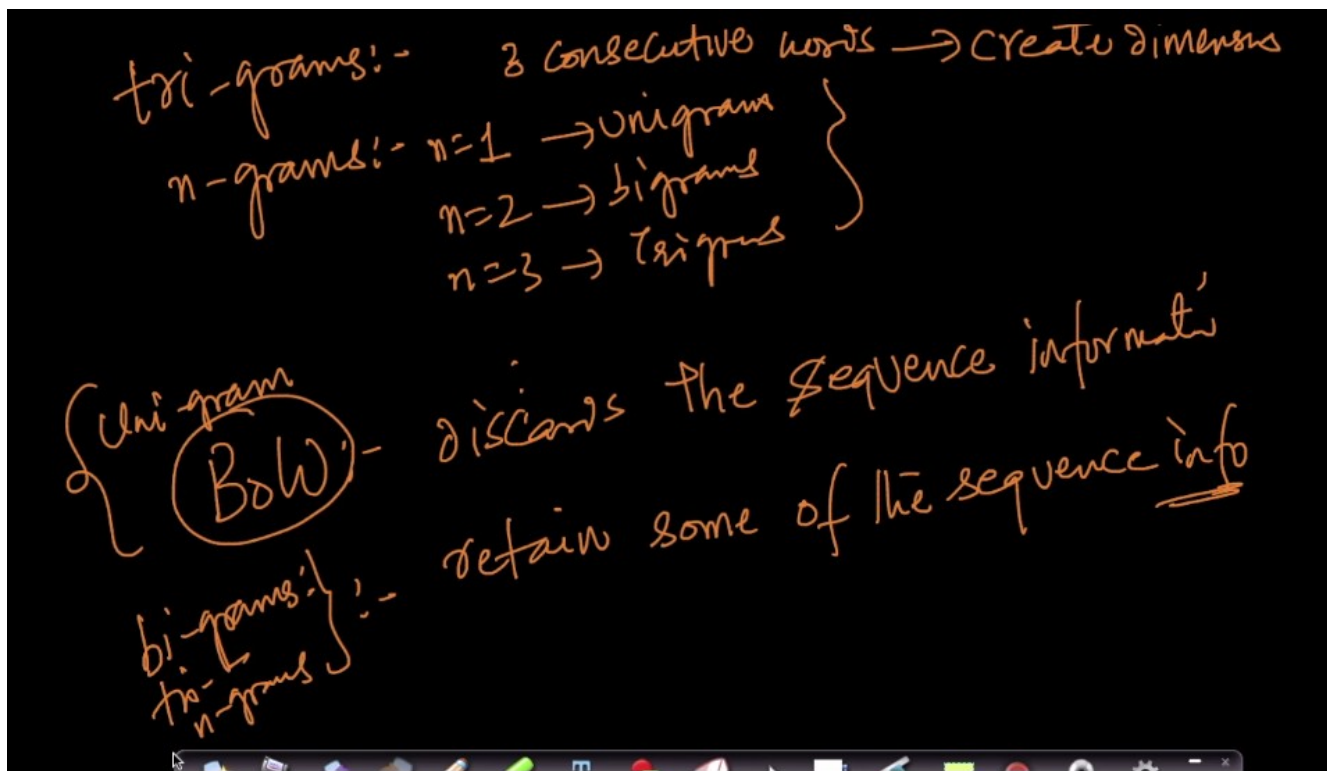 tri-grams:- 3 consecutive words → create dimensns
n-grams:- n=1 → unigram
n=2 → bigrams
n=3 → trigms
Uni-gram
BoW:- discards the sequence informati
bi-grams:
tri-
n-grams :- retain some of the sequence info